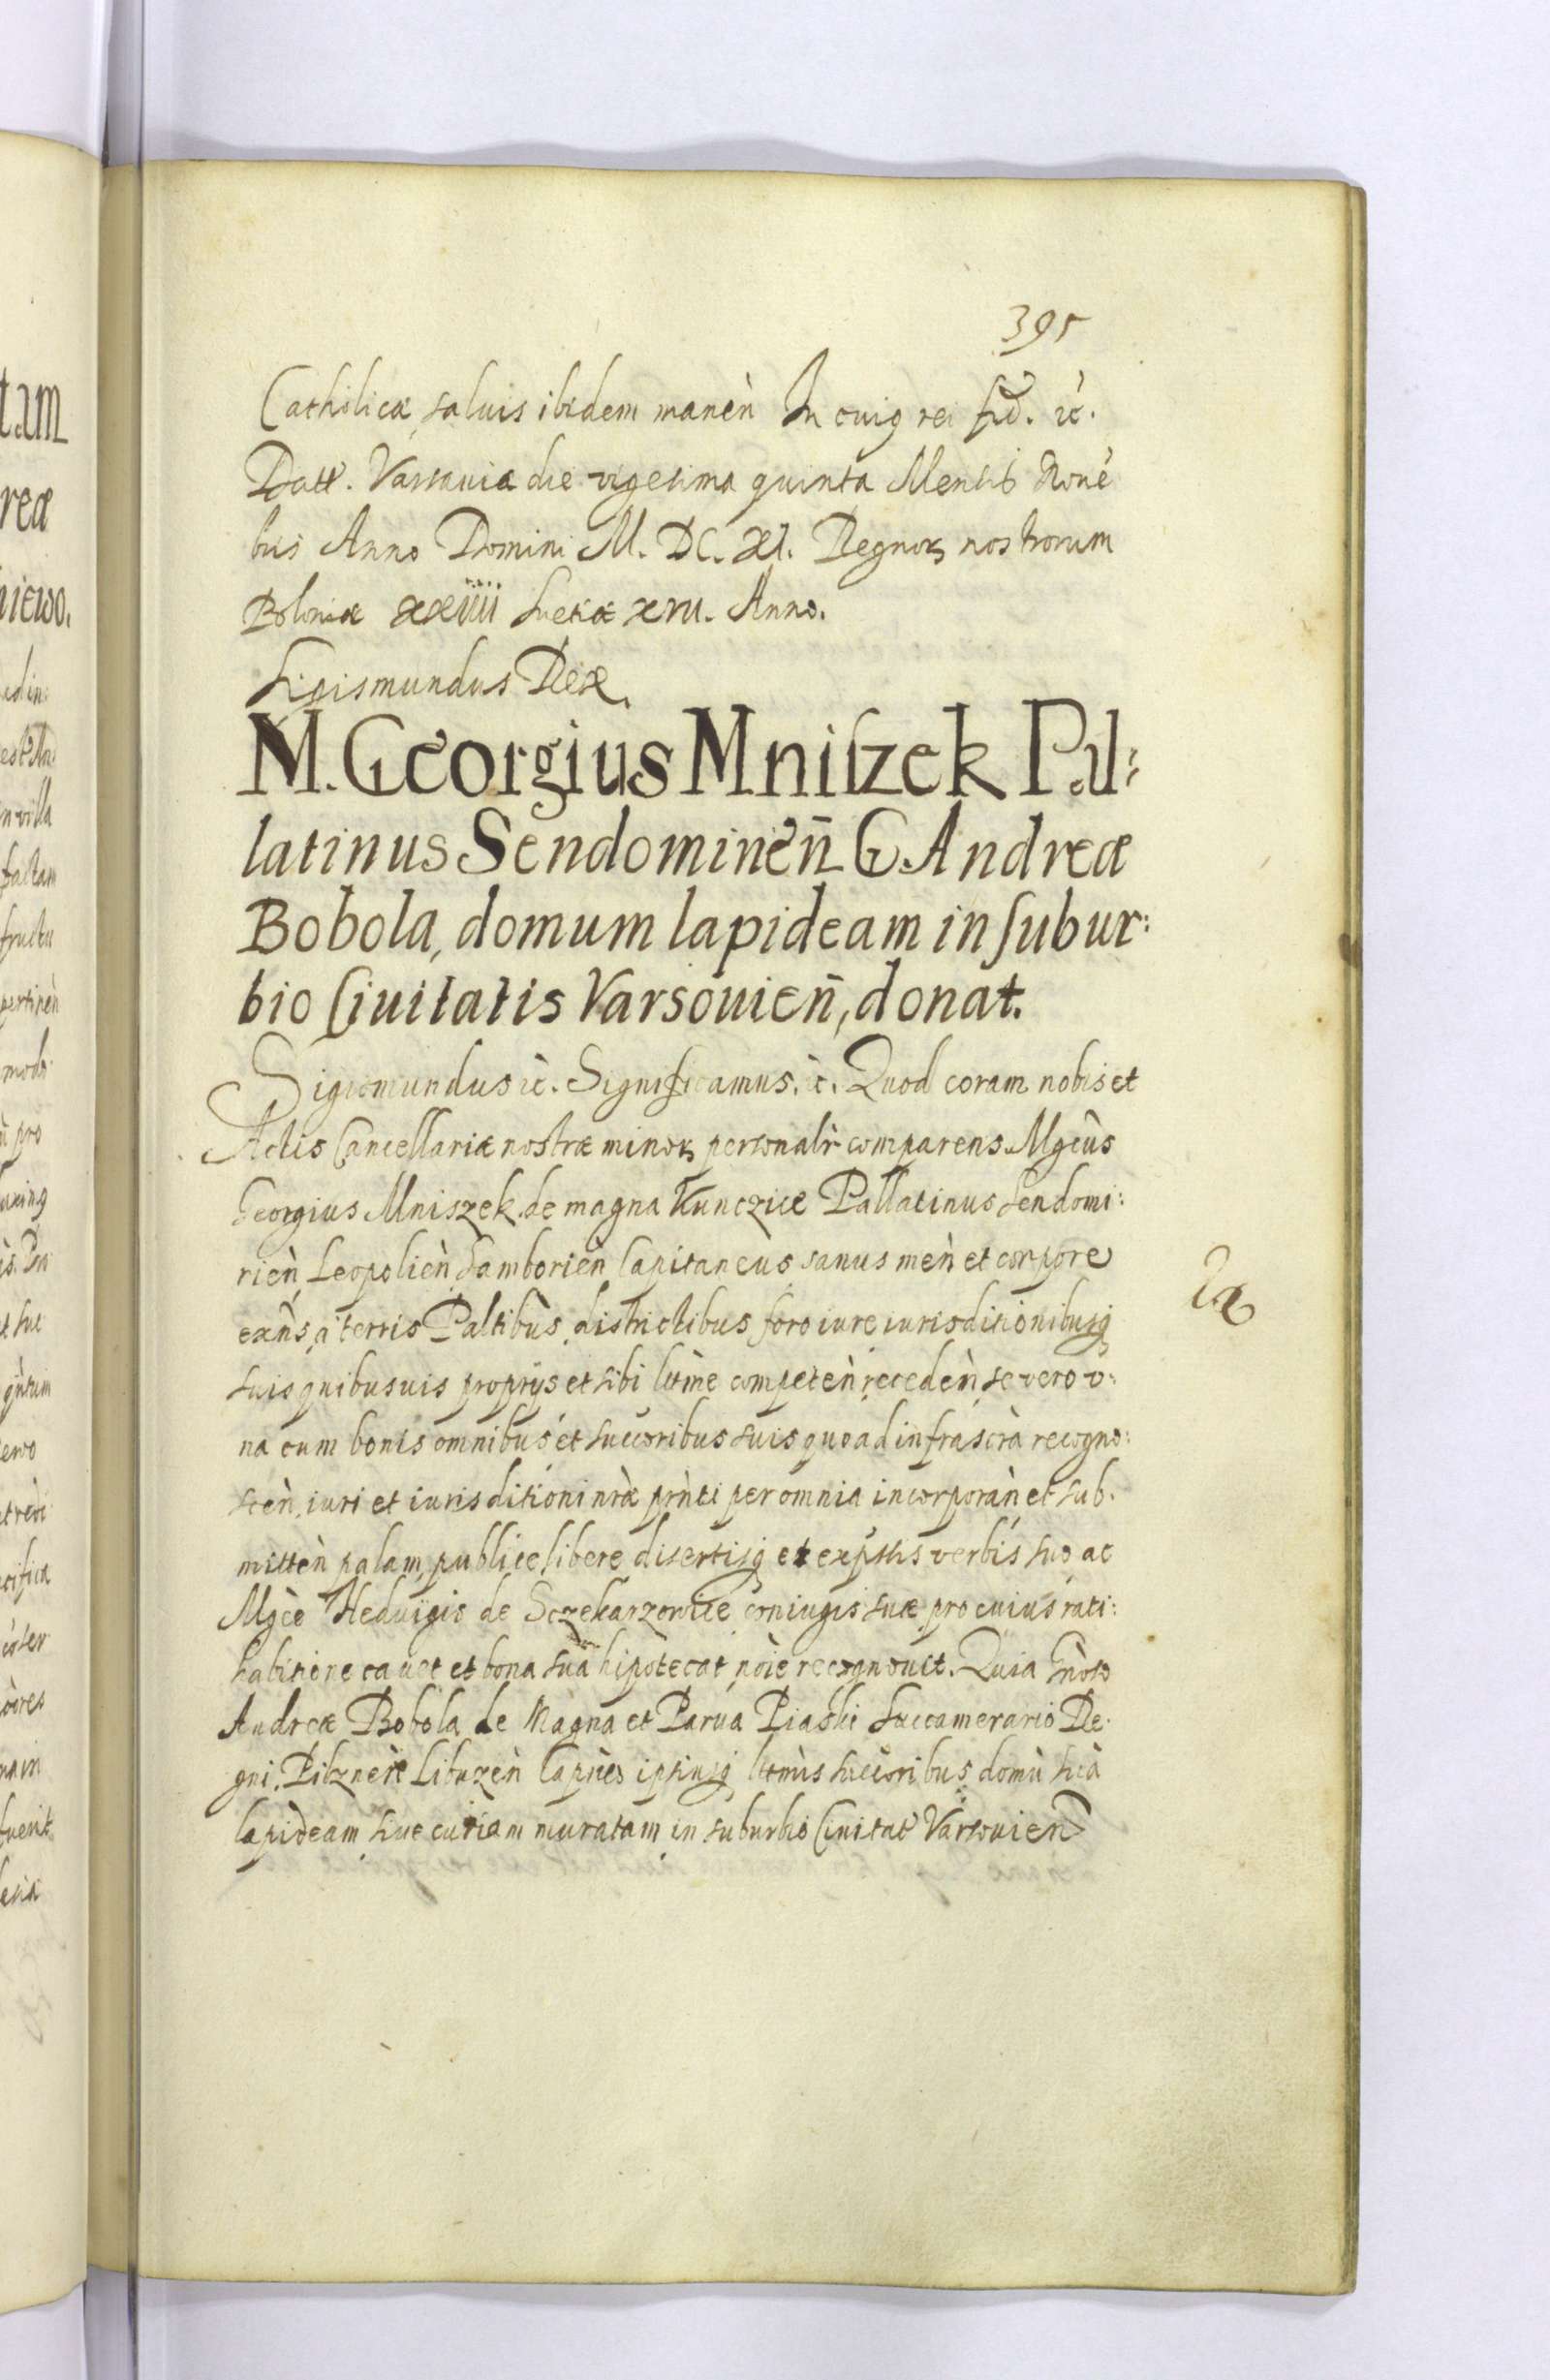 395
Catholicæ, saluis ibidem manen̄ In cuiq rei fid. ĉ.
Datt. Varsauiæ die vigesima quinta Mensis Noue
bris Anno Domini M. DC. XI. Regnoꝝ nostrorum
Poloniæ xxiiii Suetiæ xvii. Anno.
Sigismundus Rex.
M. Georgius Mniszek Pal:
latinus Sendomirien̄ G. Andreæ
Bobola, domum lapideam in subur:
bio Ciuitatis Varsouien̄, donat.
Sigismundus ĉ. Significamus. ĉ. Quod coram nobis et
Actis Cancellariæ nostræ minoꝝ personalr̀ comparens Mgcus
Georgius Mniszek de magna Kunczice Pallatinus Sendomi:
rien̄, Leopolien̄ Samborien̄ Capitaneus sanus men̄ et corpore
exn̄s, a terris Paltibus, districtibus foro iure iurisditionibusq
suis quibusuis proprijs et sibi ltime competen̄ receden̄, se vero v:
na cum bonis omnibus et succoribus suis quoad infrascra recogno:
scen̄, iuri et iurisditioni nr̄æ prn̄ti per omnia incorporan̄ et sub.
mitten̄ palam, publice libere disertisq et expssis verbis suo ac
Mgcę Heduigis de Sczekarzowice coniugis suæ pro cuius rati:
habitione cauet et bona sua hipotecat, nōie recognouit. Quia Gn̄oso
Andreæ Bobola de Magna et Parua Piaski Succamerario Re.
gni, Pilznen̄ Libuzen̄ Capn̄eo ipsiusq ltmis succoribus, domū suā
lapideam siue curiam muratam in suburbio Ciuitat Varsouien̄